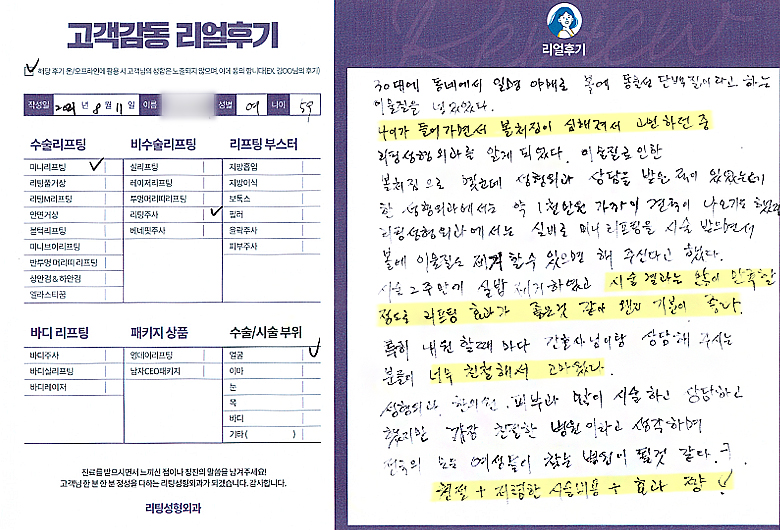 고객감동 리얼후기
해당 후기 온/오프라인에 활용 시 고객님의 성함은 노출되지 않으며, 이에 동의 합니다(EX. 김OO님의 후기)
작성일 2021 년 8 월 11 일 이름 성별 여 나이 59
수술리프팅
미니리프팅
리팅풀거상
리팅M리프팅
안면거상
본턱리프팅
미니브이리프팅
반투명 머리띠 리프팅
상안검 & 하안검
엘라스티꿈
비수술리프팅
실리프팅
레이저리프팅
투명머리띠리프팅
리팅주사
베네핏주사
리프팅 부스터
지방흡입
지방이식
보톡스
필러
윤곽주사
피부주사
바디 리프팅
바디주사
바디실리프팅
바디레이저
패키지 상품
원데이리프팅
남자CEO패키지
수술/시술 부위
얼굴
이마
눈
목
바디
기타( )
진료를 받으시면서 느끼신 점이나 칭찬의 말씀을 남겨주세요!
고객님 한 분 한 분 정성을 다하는 리팅성형외과가 되겠습니다. 감사합니다.
리팅성형외과
Review
리얼후기
30대에 동네에서 일명 야매로 볼에 단백질이라고 하는
이물질을 넣었었다.
49가 들어가면서 볼처짐이 심해져서 고민하던 중
리팅성형외과를 알게 되었다. 이물질로 인한
볼처짐으로 성형외과 상담을 받은 적이 있었는데
한 성형외과에서는 약 1천만원 가까이 견적이 나오기도 했었
리팅성형외과에서는 실비로 미니리프팅을 시술 받으면서
볼에 이물질도 제거 할 수 있으면 해 주신다고 했다.
시술 2주만에 실밥 제거하였고 시술 결과는 만족할
정도로 리프팅 효과가 좋은것 같아 기분이 좋다.
특히 내원 할 때 마다 간호사님이랑 상담해 주시는
분들이 너무 친절해서 고마웠다.
성형외과, 한의원, 피부과 많이 시술하고 상담하고
했지만 가장 친절한 병원이라고 생각하며
전국의 모든 여성들이 찾는 병원이 될것 같다.
친절 + 저렴한 시술비용 + 효과 짱!